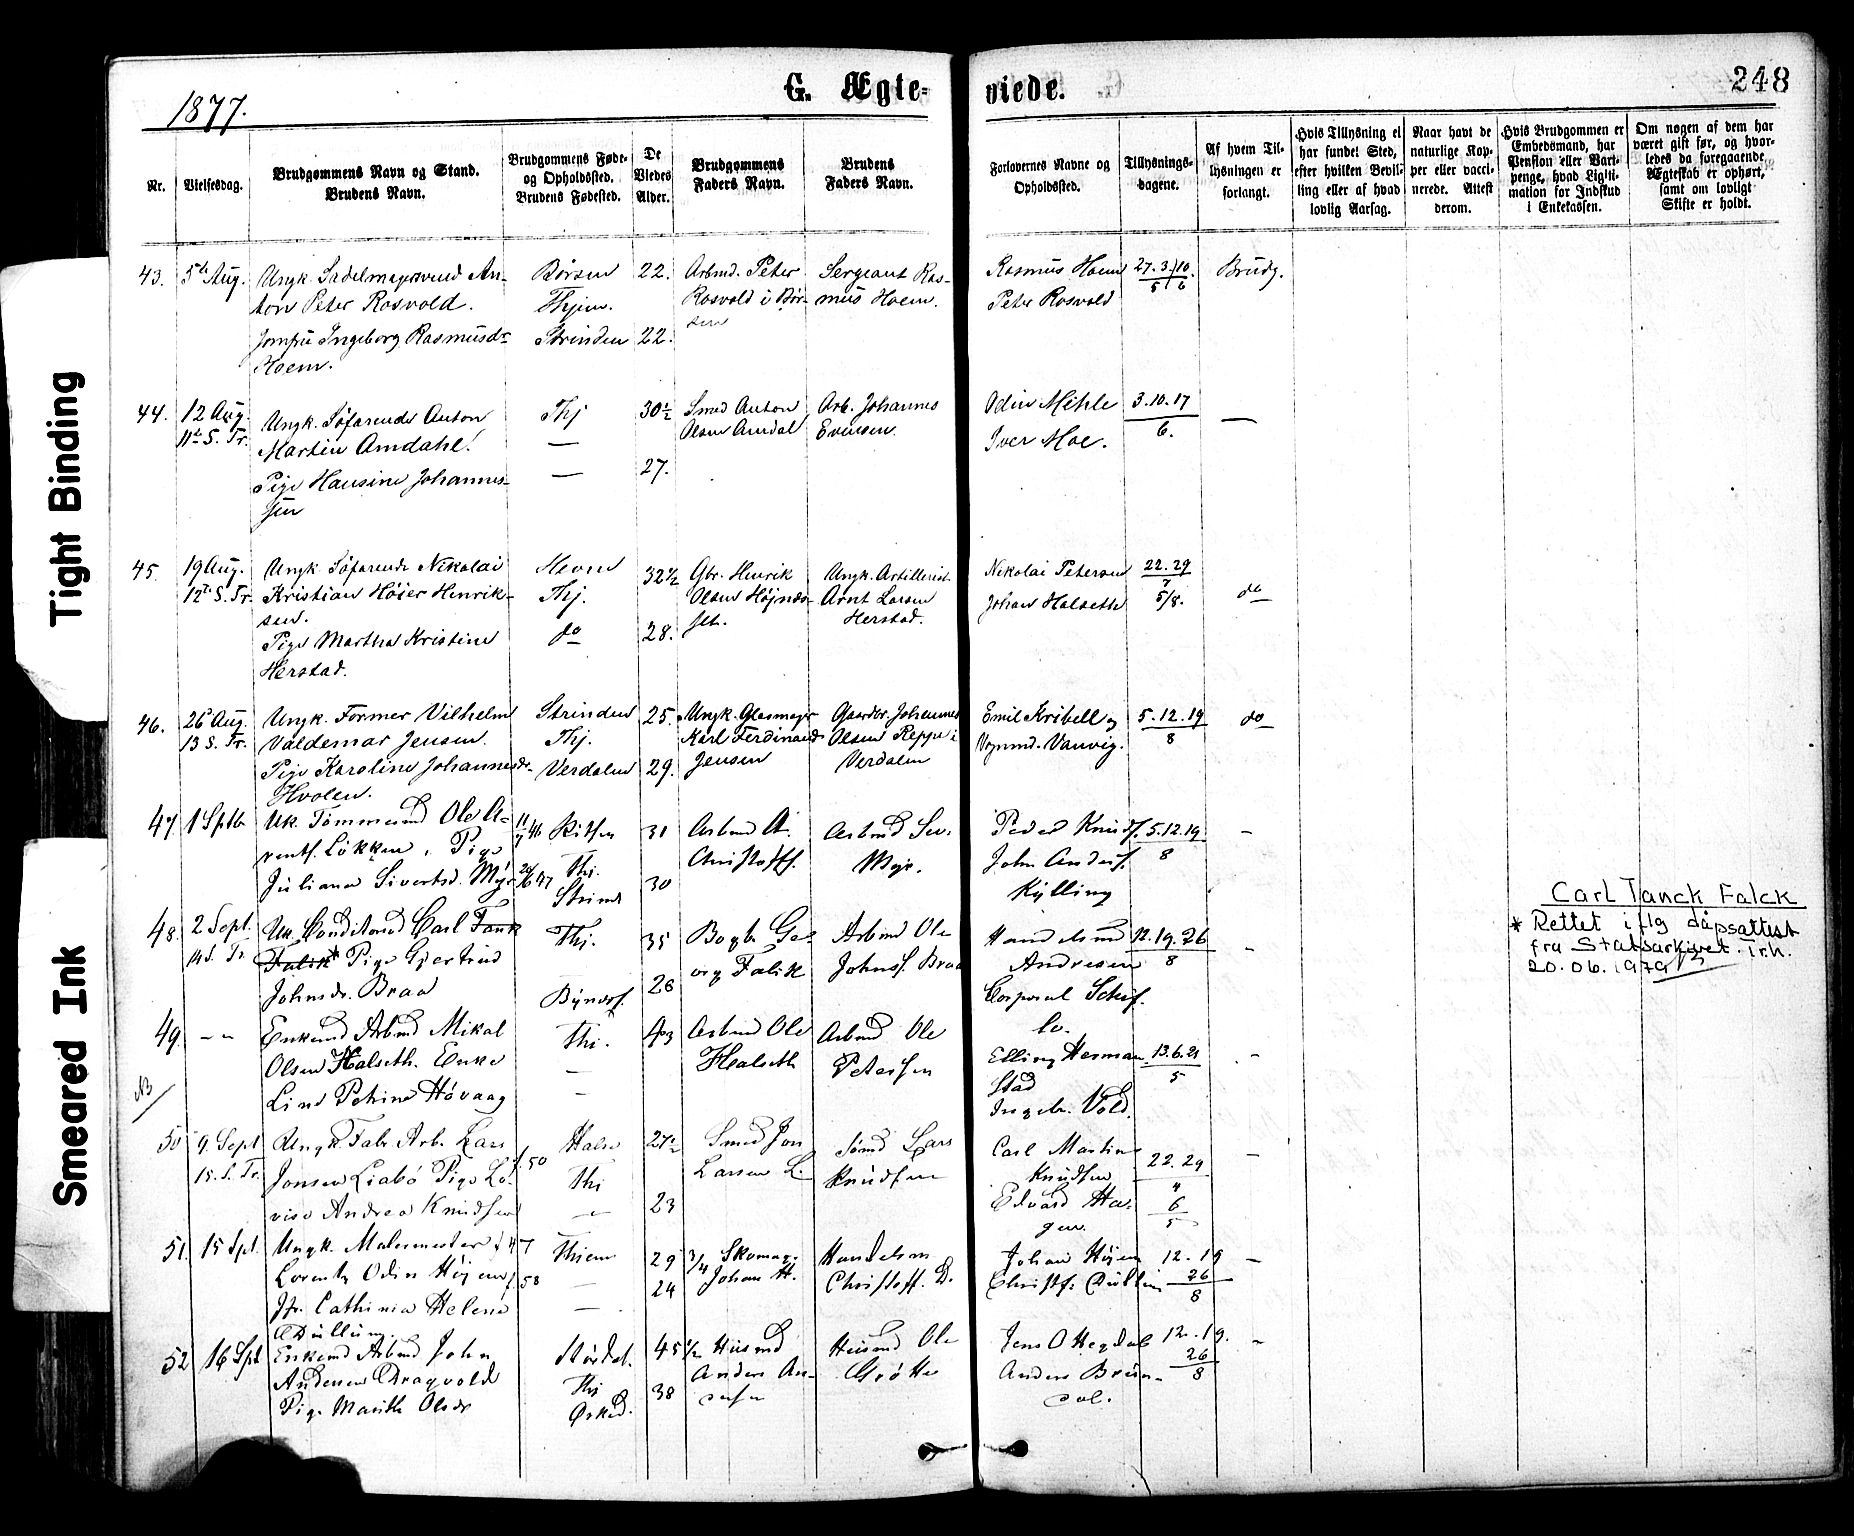 1877.
G. Ægte-
viede.
248
Nr.
Vielsesdag.
Brudgommens Navn og Stand.
Brudens Navn.
Brudgommens Føde-
og Opholdssted.
Brudens Fødested.
De
Viedes
Alder.
Brudgommens
Faders Navn.
Brudens
Faders Navn.
Forlovernes Navne og
Opholdssted.
Tillysnings-
dagene.
Af hvem Til-
lysningen er
forlangt.
Hvis Tillysning ei
har fundet Sted,
efter hvilken Bevil-
ling eller af hvad
lovlig Aarsag.
Naar havt de
naturlige Kop-
per eller vacci-
nerede. Attest
derom.
Hvis Brudgommen er
Embedsmand, har
Pension eller Vart-
penge, hvad Ligiti-
mation for Indskud
i Enkekassen.
Om nogen af dem har
været gift før, og hvor-
ledes da foregaaende
Ægteskab er ophørt,
samt om lovligt
Skifte er holdt.
43.
5te Aug.
Ungk. Sadelmagersvend An-
ton Peter Rosvold.
Jomfru Ingeborg Rasmusdr
Hoem.
Børsen
Thjem.
Strinden
22.
22.
Arbmd. Peter
Rosvold i Bør-
sen
Sergeant Ras-
mus Hoem.
Rasmus Hoem
Peter Rosvold
27.3/5 10/6.
Brudg.
44.
12 Aug.
11te S. Tr.
Ungk. Søfarende Anton
Martin Amdahl.
Pige Hansine Johannes-
sen
Thj
—
—
30½
27.
Smed Anton
Olsen Amdal
Arb. Johannes
Evensen.
Odin Mehle
Iver Moe.
3.10.17
6.
—
45.
19 Aug.
12te S. Tr.
Ungk. Søfarende Nikolai
Kristian Høier Henrik-
sen.
Pige Martha Kristine
Herstad.
Hevne
Thj.
do
32½
28.
Gbr. Henrik
Olsen Højnes-
Ungk. Artillerist
Arnt Larsen
Herstad.
Nikolai Petersen
Johan Halseth
22.29
7
5/8.
do
46.
26 Aug.
13 S. Tr.
Ungk. Former Vilhelm
Valdemar Jensen.
Pige Karoline Johannesdr-
Hvolen.
Strinden
Thj.
Verdalen
25.
29.
Ungk. Glasmager
Karl Ferdinand
Jensen
Gaardbr. Johannes
Olsen Reppe i
Verdalen
Emil Kribell og
Vognmd. Vanvig.
5.12.19
8
do
47
1 Septb
Uk. Tømmermd Ole A-
rentf. Løkken, Pige
Juliana Sivertsd. Myr
11/7 46
Ritsen
Thj.
Strinde
31
30
Arbmd A.
Christoff.
Arbmd Siv.
Myr.
Peder Knudf.
John Andersf.
Kylling
5.12.19
8
—
48.
2 Sept.
14 S. Tr
Uk. Conditored Carl Tank
Falik* Pige Gjertrud
Johnsdr. Braa
Thj.
Bynesf.
35
26
Bogb. Ge-
org Falik
Arbmd Ole
Johnsf. Braa
Handelsmd
Andresen
Corporal Schif.
12.19.26
8
-
Carl Tanck Falck
* Rettet iflg dåpsattest
fra Statsarkivet Trh.
20.06.1979
49
Enkemd Arbmd Mikal
Olsen Halseth. Enke
Line Petrine Høvaag
Thj.
—
-
43
Arbmd Ole
Halseth
Arbmd Ole
Petersen
Elling Herman-
stad
Ingebr. Vold.
13.6.21
5
-
NB
50
9 Sept
15. S. Tr.
Ungk. Fabr. Arb. Lars
Jonsen Liabø Pige Lo-
vise Andrea Knudsen
f. 50
Halse
Thj
27½
23
Smed Jon
Larsen L.
Tømd Lars
Knudsen
Carl Martin
Knudsen
Edvard Ha-
gen.
22.29
4
6
5
—
51.
15 Spt.
Ungk. Malermester f 47
Lorentz Odin Højem
Jfr. Cathinia Helene
Dullum.
f. 58
Thjem
—
—
29 3/4
24
Skomag.
Johan H.
Handelsm
Christoff. D.
Johan Højem
Christf. Dullum
12.19
26
8
—
52
16 Spt
Enkemd Arbmd John
Andersen Dragvold
Pige Marith Olsdr
Størdal.
Thj
Ørked.
45½
38
Husmd
Anders An-
dersen
Husmd Ole
Grøtte
Jens O Hegdal
Anders Brun-
dal.
12.19.
26
8
-
Tight Binding
Smeared Ink